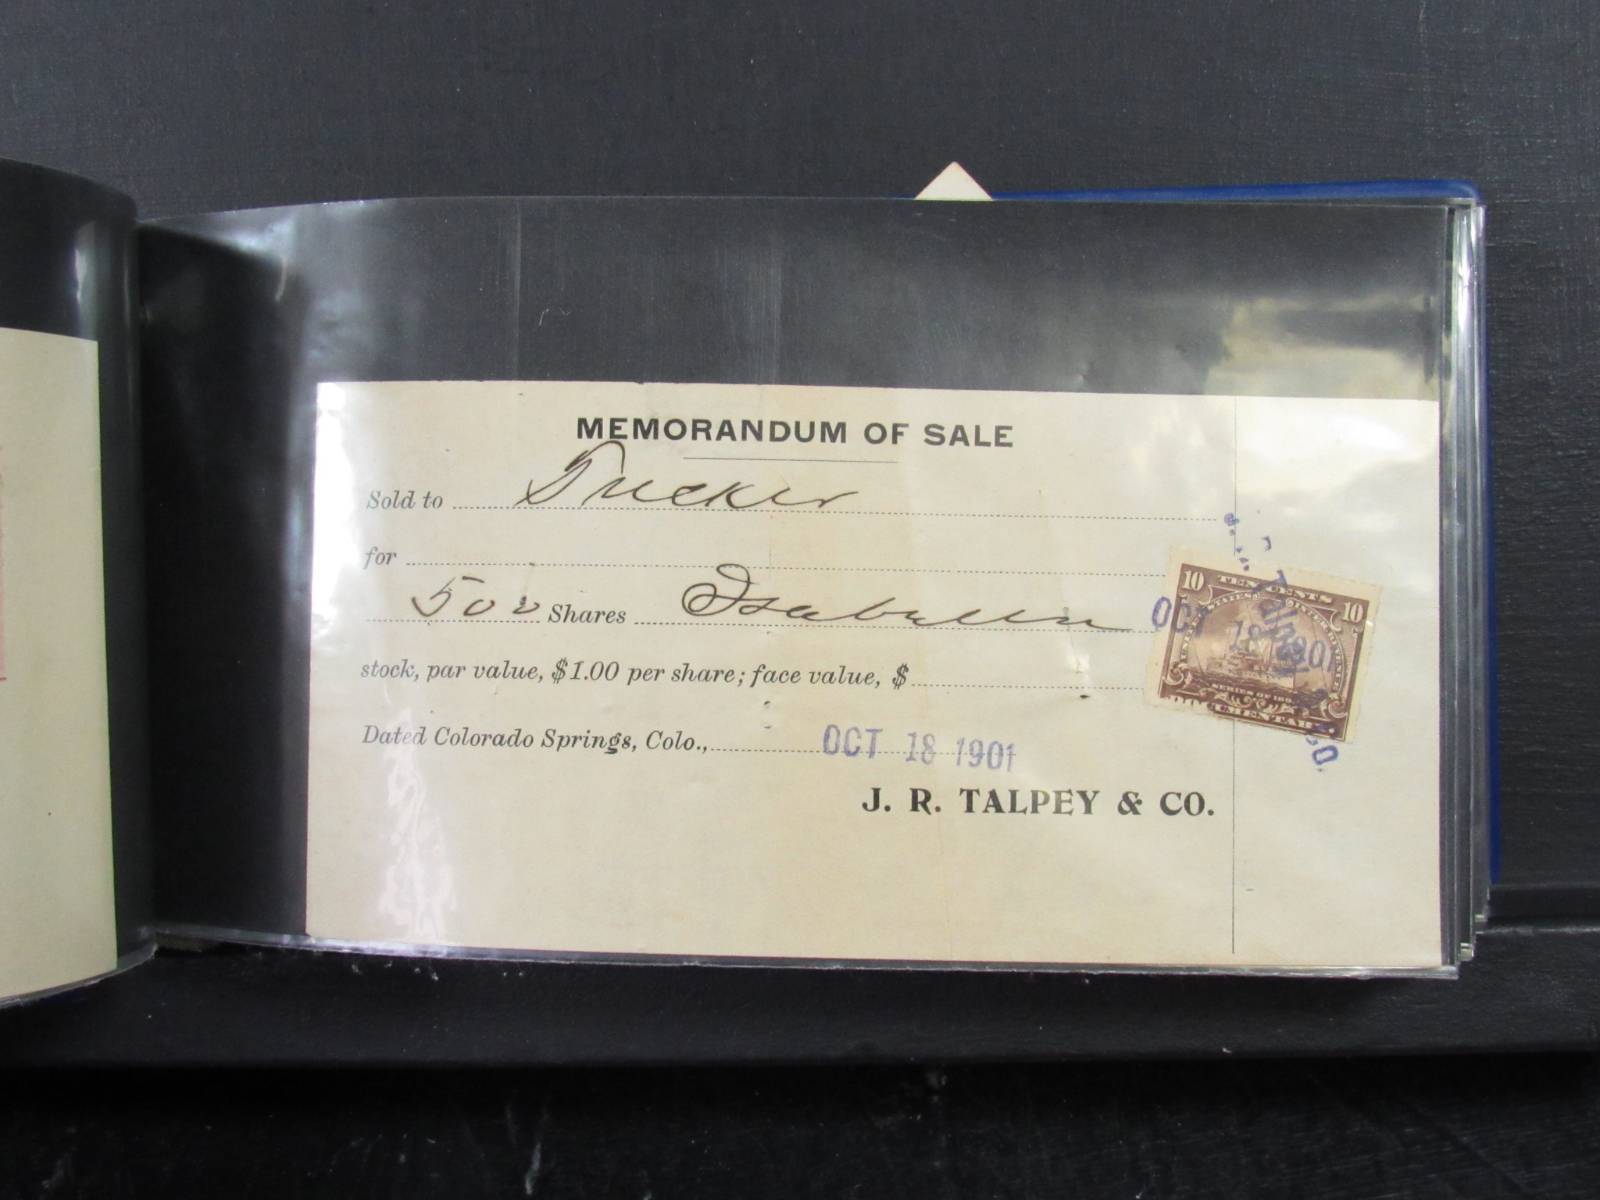 MEMORANDUM OF SALE
Sold to Tucker
for
500 Shares Isabella
stock, par value, $1.00 per share; face value, $
Dated Colorado Springs, Colo., OCT 18 1901
J. R. TALPEY & CO.
10 TEN CENTS 10
OCT 18 1901
SERIES OF
CO.